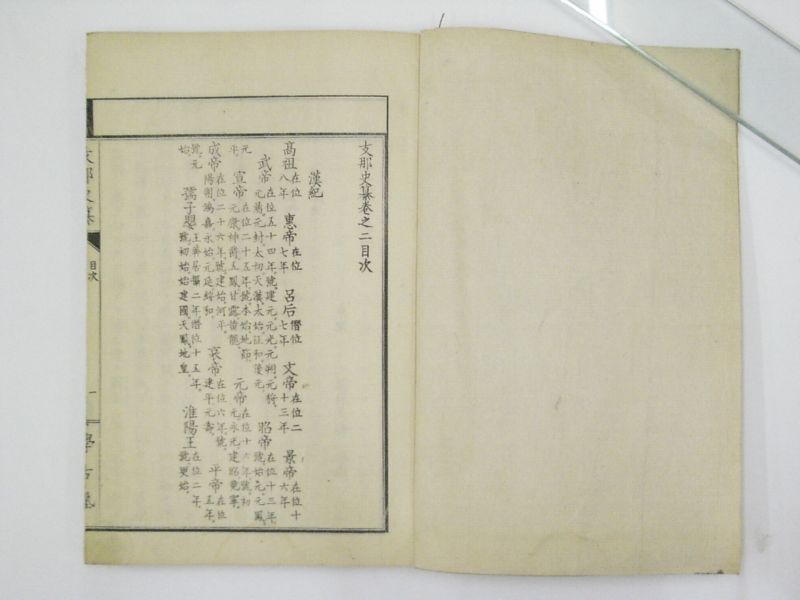 支那史纂卷之二目次
漢紀
高祖在位八年 惠帝在位七年 呂后僭位七年 文帝在位二十三年 景帝在位十六年
武帝在位五十四年號建元元光元朔元狩元鼎元封太初天漢太始征和後元 昭帝在位十三年號始元元鳳元
平 宣帝在位二十五年號本始地節元康神爵五鳳甘露黃龍 元帝在位十六年號初元永光建昭竟寧
成帝在位二十六年號建始河平陽朔鴻嘉永始元延綏和 哀帝在位六年號建平元壽 平帝在位五年
號元始 孺子嬰王莽居攝二年僭位十五年號初始始建國天鳳地皇 淮陽王在位二年號更始
支那史纂
目次
一
學古